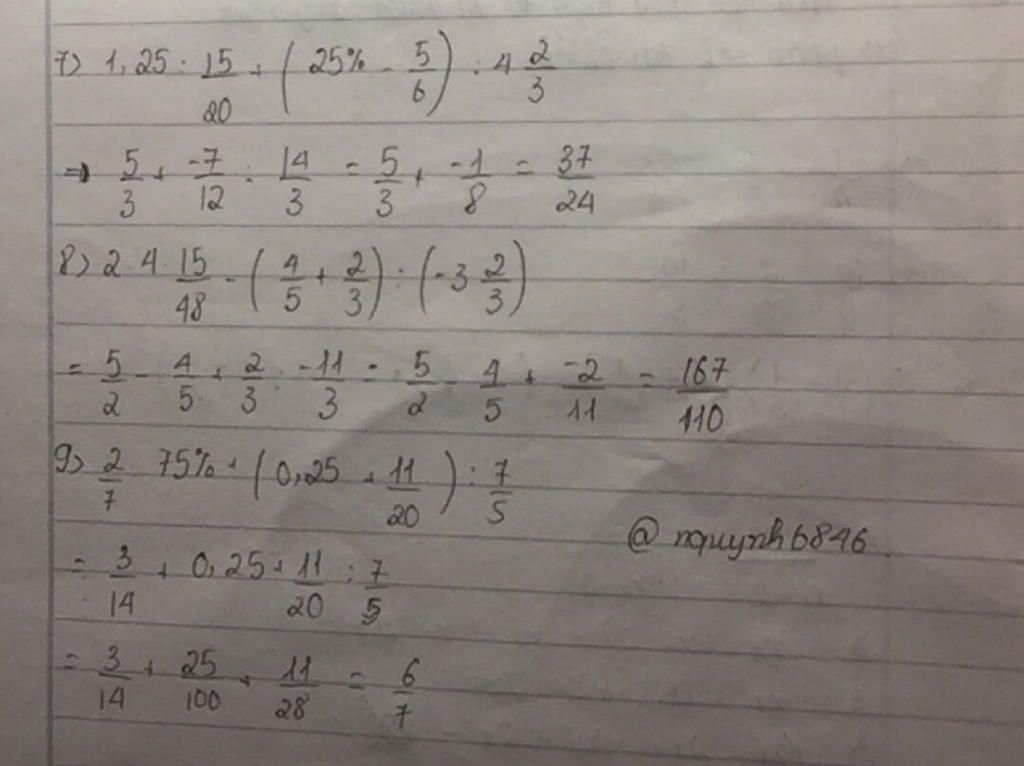 7) 1,25 : 15/20 + ( 25% - 5/6 ) : 4 2/3
⇒ 5/3 + -7/12 : 14/3 = 5/3 + -1/8 = 37/24
8) 2 . 4 . 15/48 - ( 4/5 + 2/3 ) : ( -3 2/3 )
= 5/2 - 4/5 + 2/3 : -11/3 = 5/2 - 4/5 + -2/11 = 167/110
9) 2/7 75% + ( 0,25 + 11/20 ) : 7/5
= 3/14 + 0,25 + 11/20 : 7/5
= 3/14 + 25/100 + 11/28 = 6/7